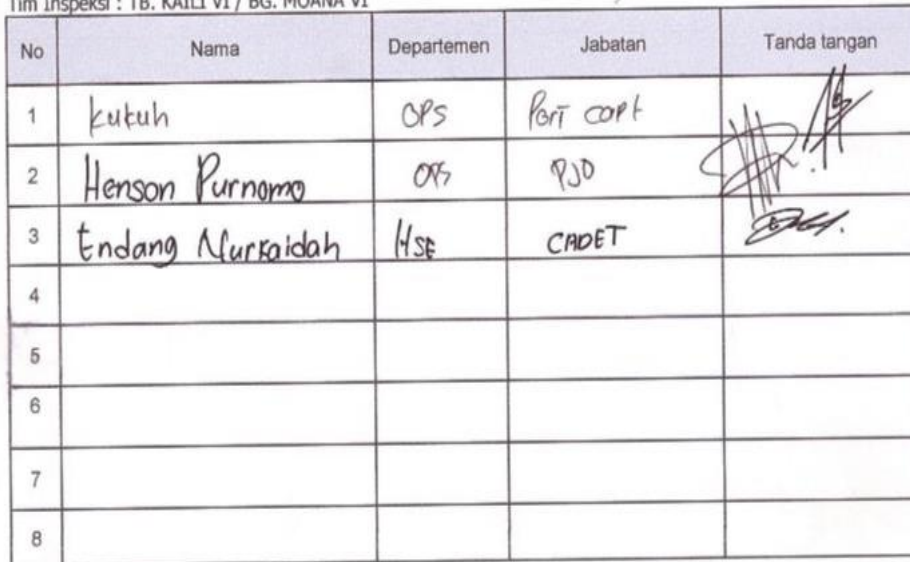 Tim Inspeksi : TB. KAILI VI / BG. MOANA VI
No Nama Departemen Jabatan Tanda tangan
1 Kukuh OPS Port Capt
2 Henson Purnomo OPS PJO
3 Endang Nurkaidah HSE CADET
4
5
6
7
8